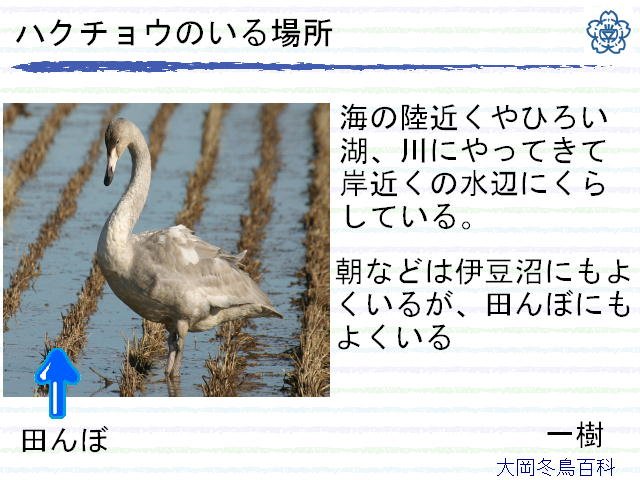 ハクチョウのいる場所
海の陸近くやひろい
湖、川にやってきて
岸近くの水辺にくら
している。
朝などは伊豆沼にもよ
くいるが、田んぼにも
よくいる
田んぼ
一樹
大岡冬鳥百科